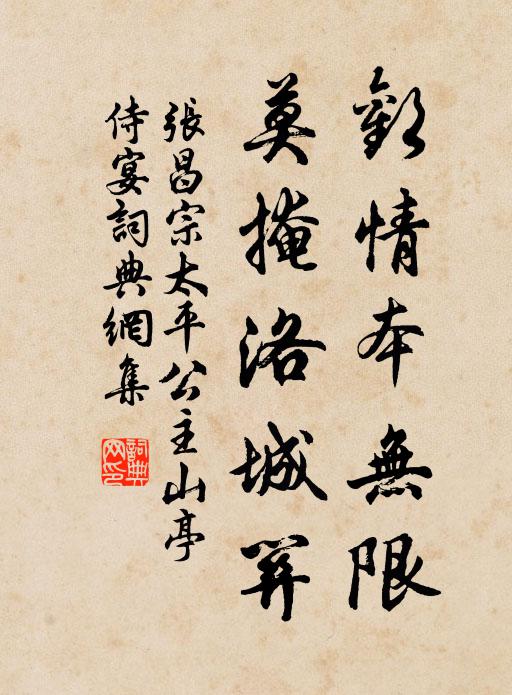 歡情本無限
莫掩洛城關
張昌宗太平公主山亭
侍宴詞典網集
詞典网印